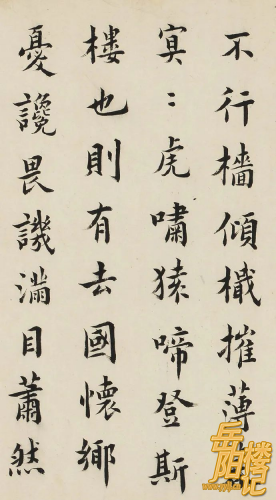 不行檣傾檝摧薄
冥〻虎嘯猿啼登斯
樓也則有去國懷鄉
憂讒畏譏滿目蕭然
岳阳楼记